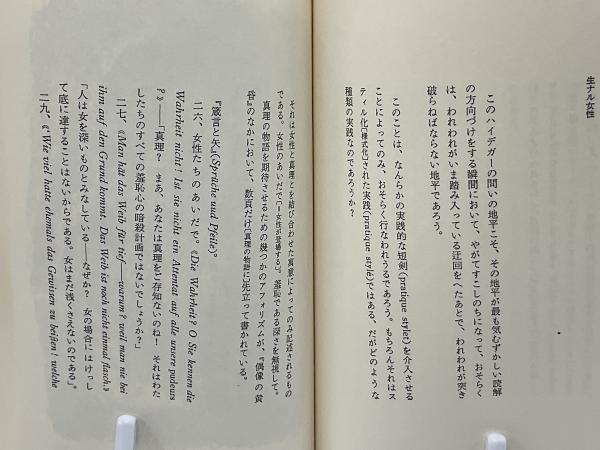 生ナル女性
このハイデガーの問いの地平こそ、その地平が最も気むずかしい読解
の方向づけをする瞬間において、やがてすこしのちになって、おそらく
は、われわれがいま踏み入っている迂回をへたあとで、われわれが突き
破らねばならない地平であろう。
このことは、なんらかの実践的な短剣(pratique stylet)を介入させる
ことによってのみ、おそらく行なわれうるであろう。もちろんそれはス
ティル化[様式化]された実践(pratique style)ではある、だがどのような
種類の実践なのであろうか?
それは女性と真理とを結び合わせた寓意によってのみ記述されるもの
である。女性のあいだで[=女性が登場する]。羞恥である深さを無視して。
真理の物語を期待させるための幾つかのアフォリズムが、『偶像の黄
昏』のなかにおいて、数頁だけ[真理の物語に]先立って書かれている。
『箴言と矢』(Sprüche und Pfeile)。
二六、女性たちのあいだで。《Die Wahrheit? O Sie kennen die
Wahrheit nicht! Ist sie nicht ein Attentat auf alle unsre pudeurs
?》——「真理? まあ、あなたは真理をご存知ないのね! それはわた
したちのすべての羞恥心の暗殺計画ではないでしょうか?」
二七、《Man hält das Weib für tief——warum? weil man nie bei
ihm auf den Grund kommt. Das Weib ist noch nicht einmal flasch.》
「人は女を深いものとみなしている——なぜか? 女の場合にはけっし
て底に達することはないからである。女はまだ浅くさえないのである」。
二九、《Wie viel hatte ehemals das Gewissen zu beißen! welche